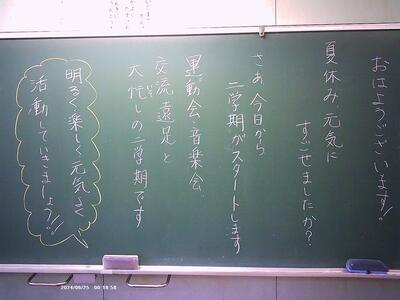 おはようございます!!
夏休み、元気に
すごせましたか?
さあ 今日から
二学期がスタートします
運動会、音楽会、
交流遠足と
大忙しの二学期です
明るく楽しく元気よく
活動していきましょう!!
2024/08/25 00:18:58